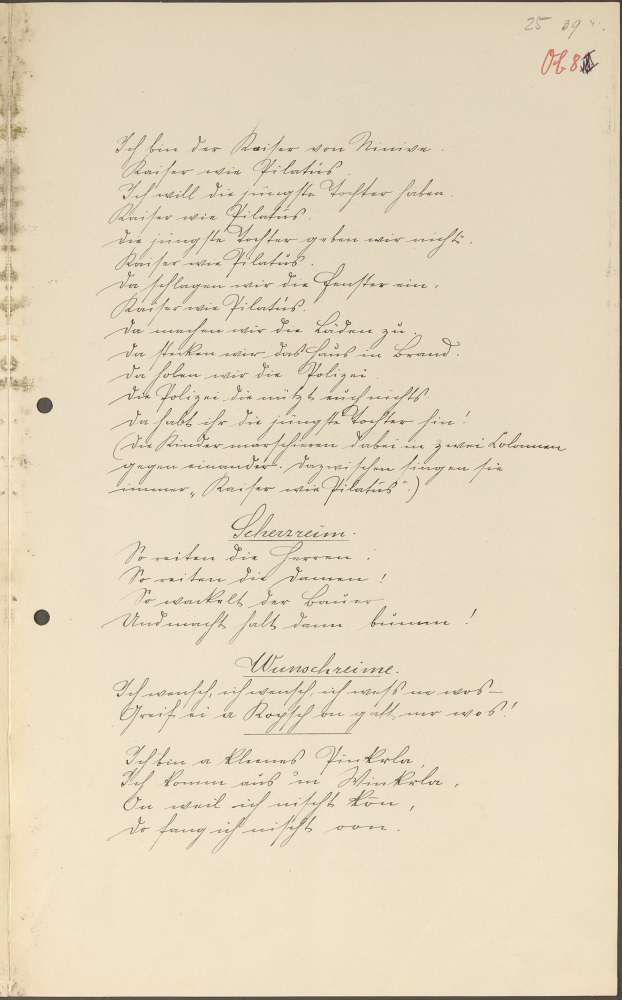 25 39
Ob 8
Ich bin der Kaiser von Ninive.
Kaiser wie Pilatus
Ich will die jüngste Tochter haben.
Kaiser wie Pilatus.
Die jüngste Tochter geben wir nicht.
Kaiser wie Pilatus.
Da schlagen wir die Fenster ein.
Kaiser wie Pilatus.
Da machen wir die Läden zu.
Da stecken wir das Haus in Brand.
Da holen wir die Polizei
Die Polizei die nützt euch nichts
Da habt ihr die jüngste Tochter hin!
(Die Kinder marschieren dabei in zwei Colonnen
gegen einander. Dazwischen singen sie
immer „Kaiser wie Pilatus“.)
Scherzreim.
So reiten die Herren:
So reiten die Damen!
So wackelt der Bauer
Und macht halt dann bumm!
Wunschreime.
Ich wensch, ich wensch, ich wess ne wos-
Greif ei a Kopsch on gatt mr wos!
Ich bin a kleenes Pinkerla,
Ich komm aus 'm Winkerla,
On weil ich nischt kön,
Do fang ich nischt oon.